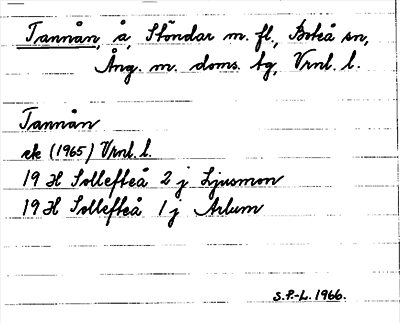 Tannån, å, Stöndar m. fl., Boteå sn,
Ång. m. doms. bg, Vrnl. l.
Tannån
ek (1965) Vrnl. l.
19 H Sollefteå 2 j Ljusmon
19 H Sollefteå 1 j Arlum
S.P.-L. 1966.